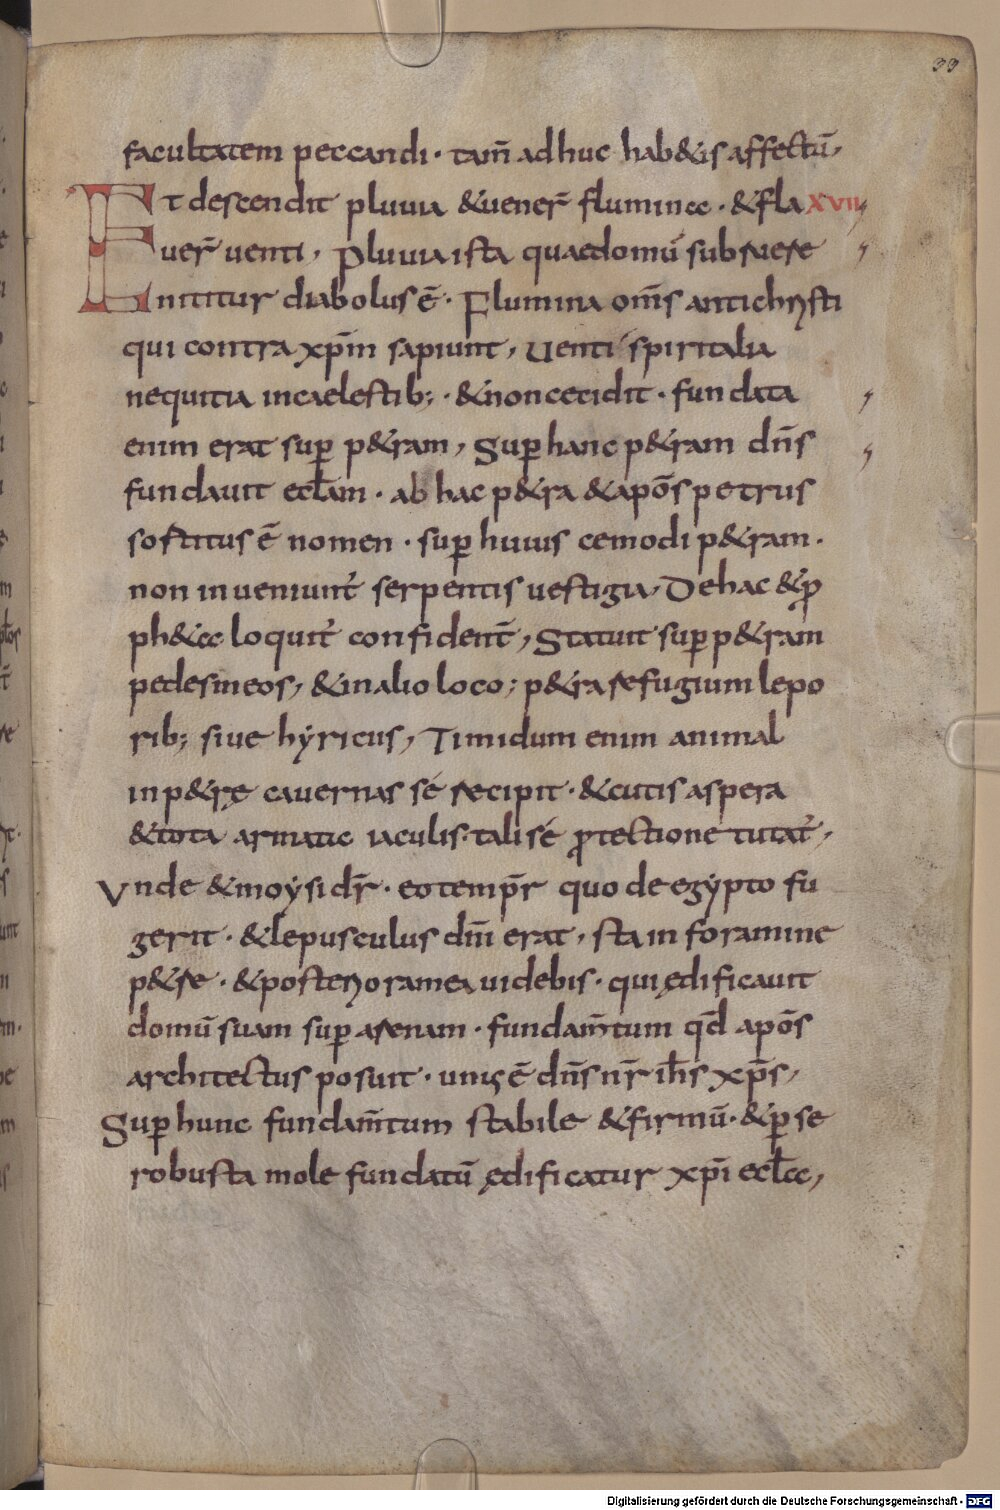 33
facultatem peccandi · tam̄ adhuc hab&is affectū,
Et descendit pluuia &uener̄ fluminæ · &fla XVII
uer̄ uenti, Pluuia ista quaedomū subuere
nititur diabolus ē · Flumina om̄s antichristi
qui contra xp̄m sapiunt, Uenti spiritalia
nequitia incaelestib; · &noncecidit · fundata
enim erat sup p&ram, Sup hanc p&ram dn̄s
fundauit eclam · ab hac p&ra &apōs petrus
sortitus ē nomen · sup huius cemodi p&ram ·
non inueniunt̄ serpentis uestigia, Dehac &pro
ph&ae loquit̄ confident̄, Statuit sup p&ram
pedesmeos, &inalioloco; p&ra refugium lepo
rib; siue hyricus, Timidum enim animal
inp&rę cauernas sé recipit · &cutis aspera
&tota armata iaculis · tali sé protectione tutat̄,
Vnde &moysi dr̄ · eotemp̄r quo de egypto fu
gerit · &lepusculus dn̄i erat, sta in foramine
p&re · &posteriora mea uidebis · qui ędificauit
domū suam sup arenam · fundam̄tum qd̄ apōs
architectus posuit · unus ē dn̄s nr̄ ih̄s xp̄s,
Sup hunc fundam̄tum stabile &firmū · &p se
robusta mole fundatū ędificatur xp̄i eclæ,
Digitalisierung gefördert durch die Deutsche Forschungsgemeinschaft - DFG